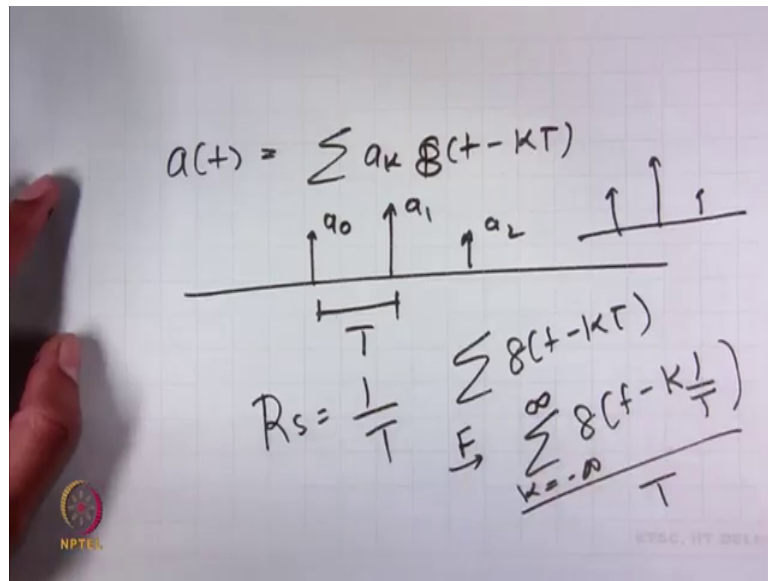 a(t) = ∑ aₖ δ(t - KT)
a₀ a₁ a₂
T
Rs = 1/T
∑ δ(t - KT)
F→ ∑_{K=-∞}^{∞} δ(f - K 1/T) / T
NPTEL
ETSC, IIT DELHI